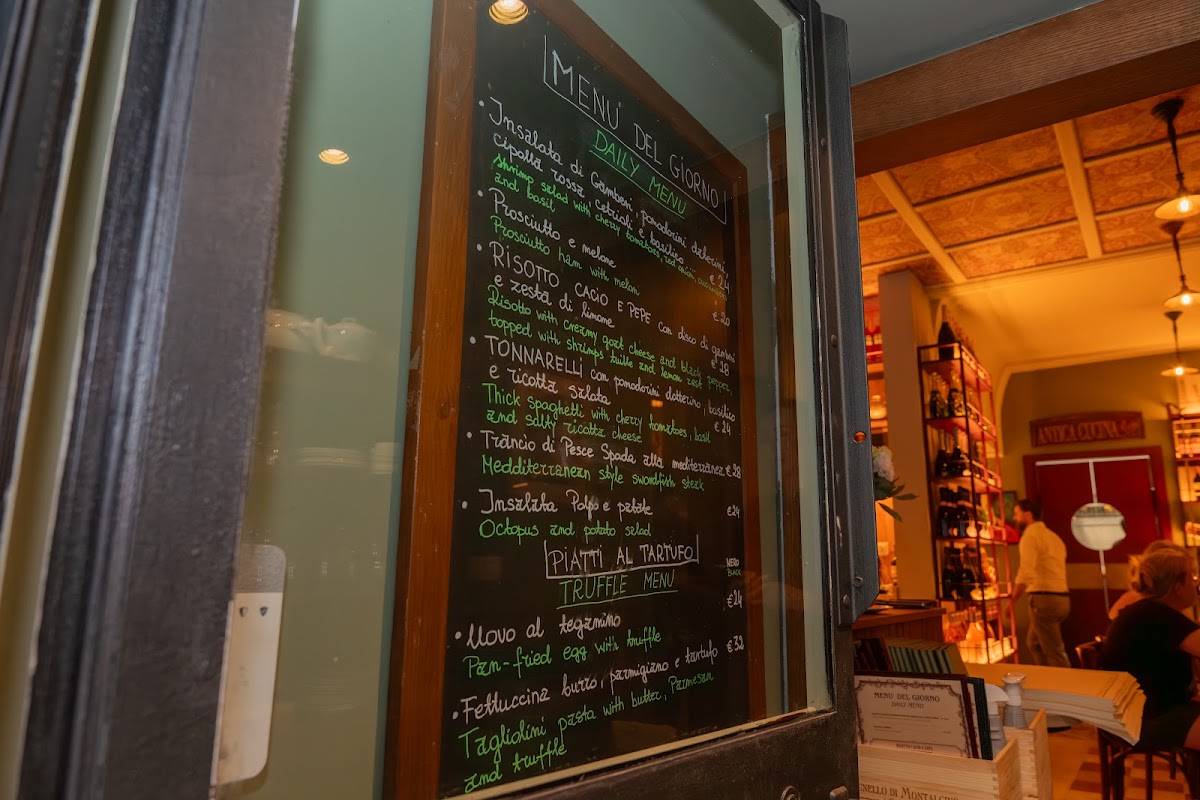 MENU' DEL GiORNO
DAILY MENU
• Insalata di Gamberi, pomodorini datterini,
cipolla rossa, cetrioli e basilico ... €24
shrimp salad with cherry tomatoes, red onion, cucumbers
and basil
• Prosciutto e melone €20
Prosciutto ham with melon
• RISOTTO CACIO E PEPE con disco di gamberi
e zesta di limone €28
Risotto with creamy goat cheese and black pepper,
topped with shrimps tuille and lemon zest
• TONNARELLI con pomodorini datterino, basilico
e ricotta salata €24
Thick spaghetti with cherry tomatoes, basil
and salty ricotta cheese
• Trancio di Pesce Spada alla mediterranea €28
Medditerranean style swordfish steak
• Insalata Polpo e patate €24
Octopus and potato salad
PIATTI AL TARTUFO NERO
TRUFFLE MENU BLACK
• Uovo al tegamino €24
Pan-fried egg with truffle
• Fettuccina burro, parmigiano e tartufo €32
Tagliolini pasta with butter, Parmesan
and truffle
ANTICA CUCINA
MENU DEL GIORNO
DAILY MENU
NELLO DI MONTALCI